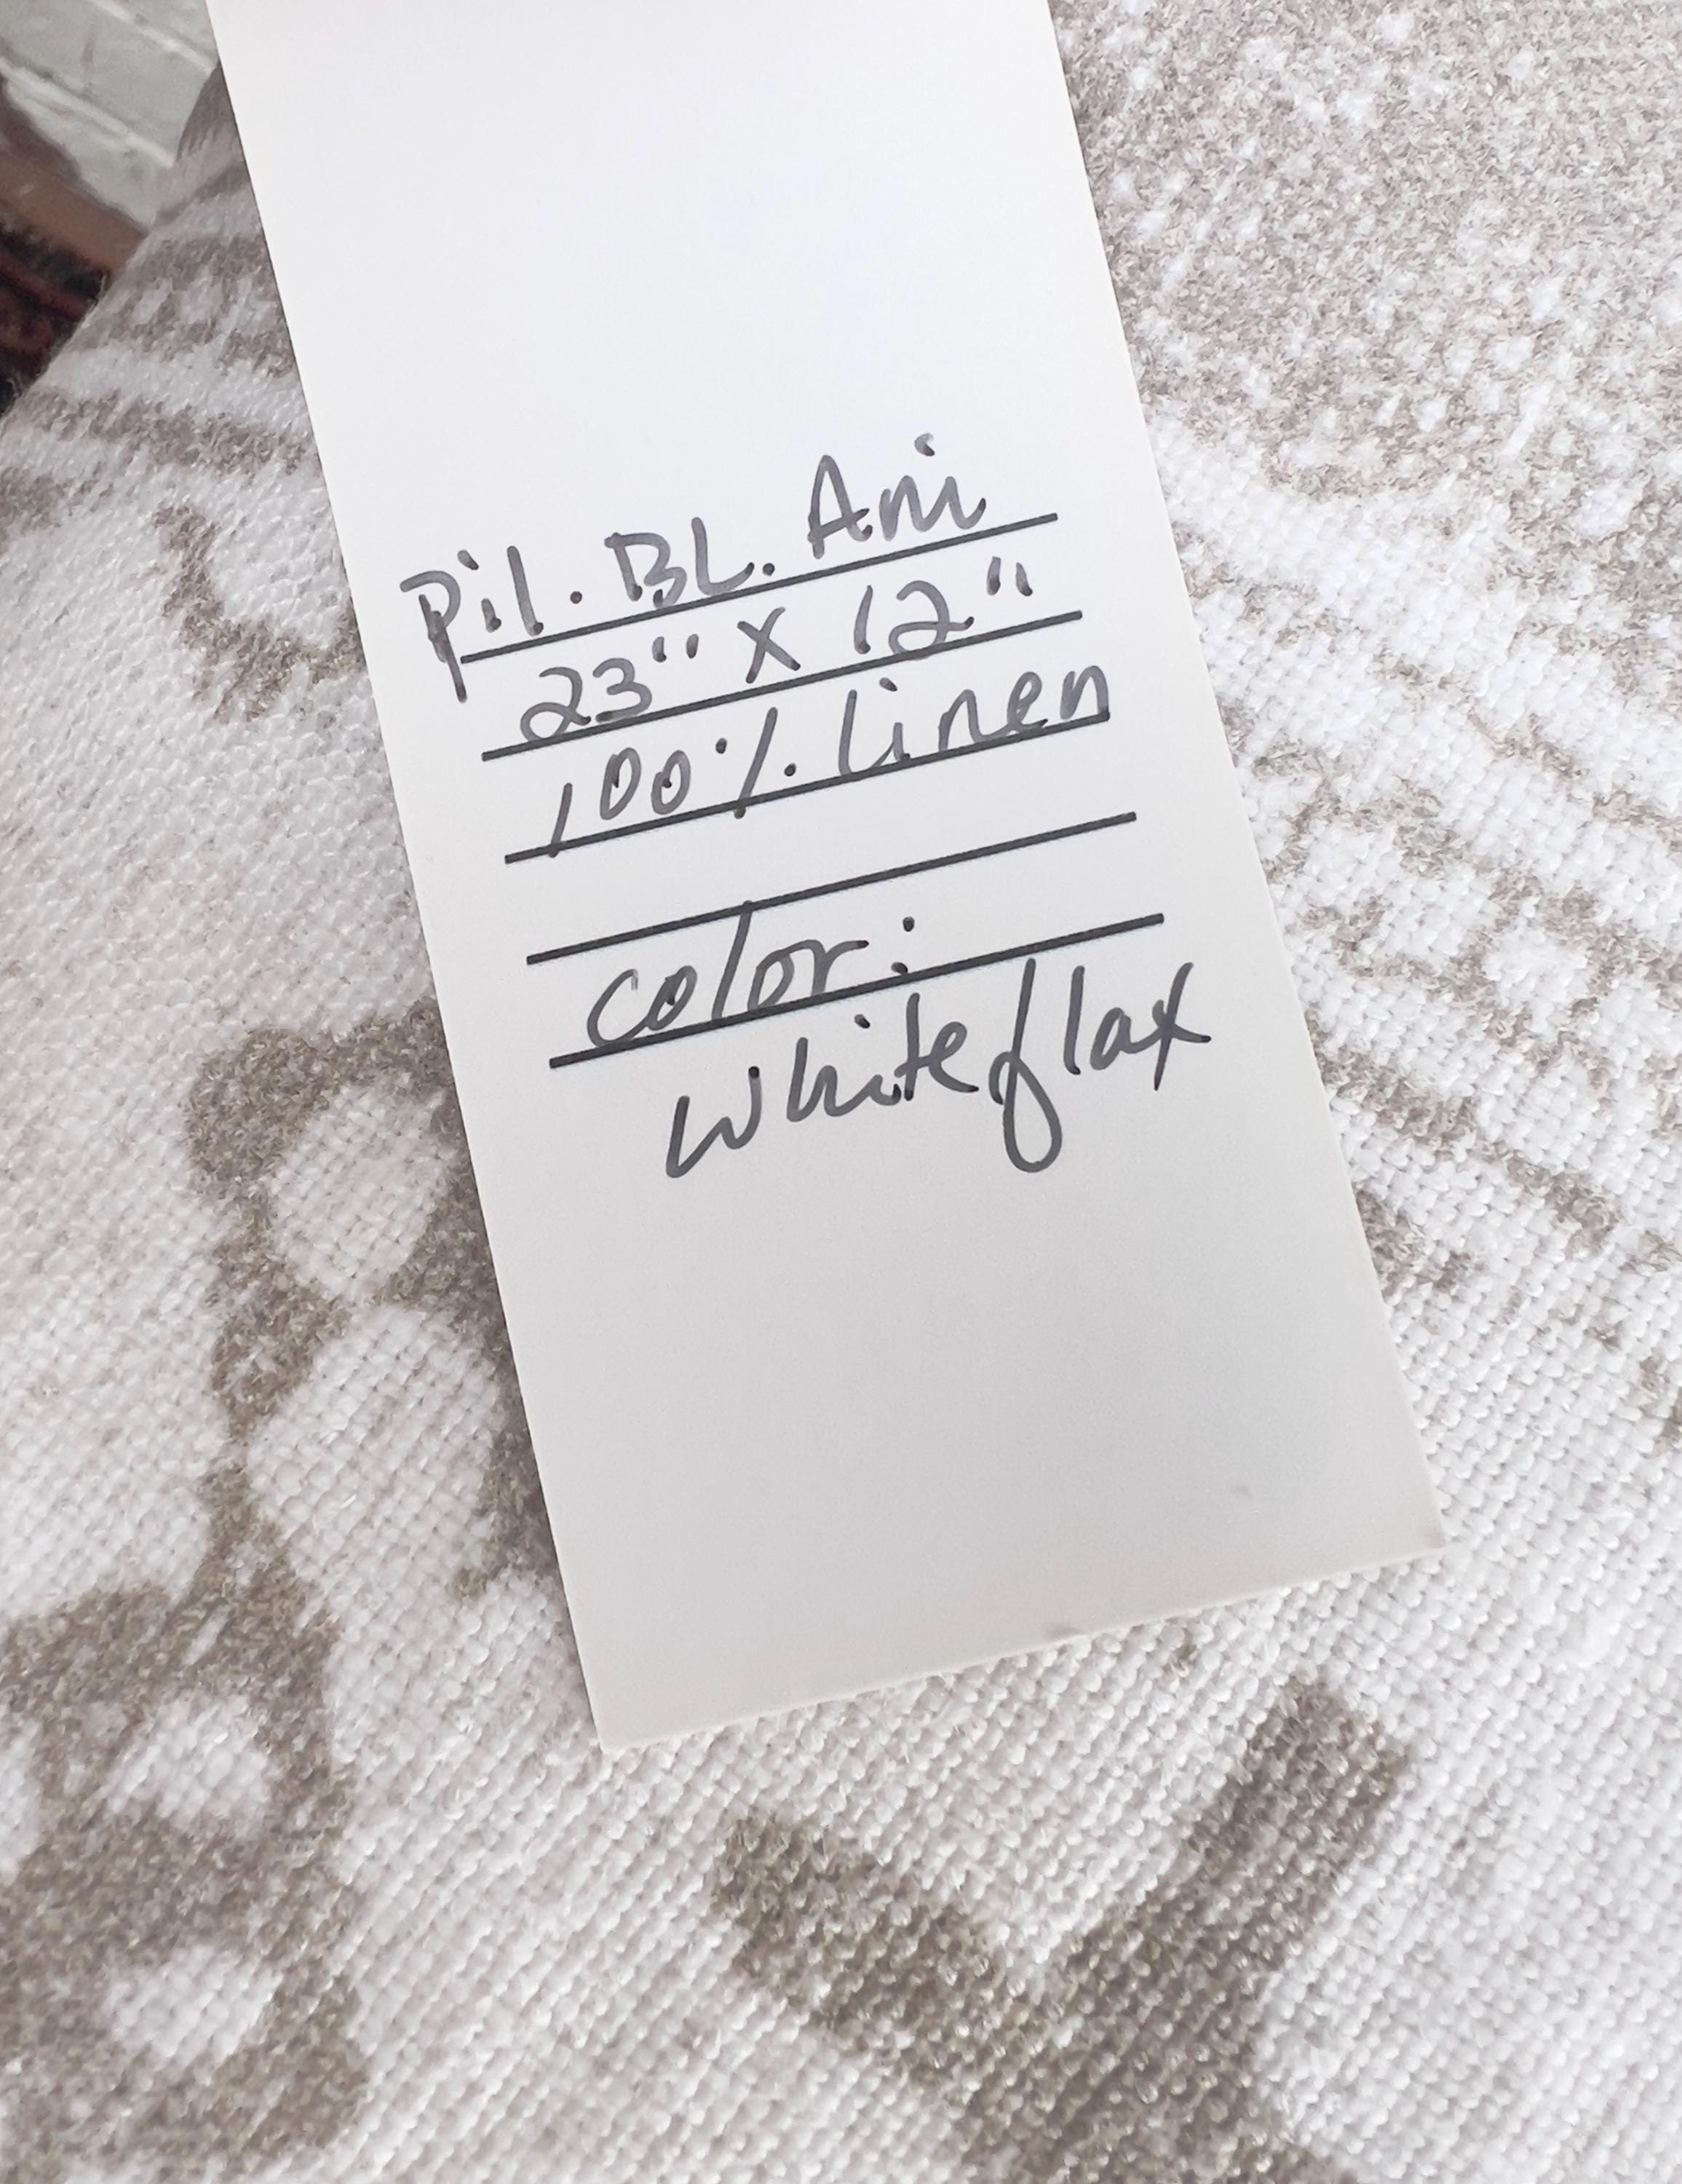 Pil. BL. Ani
23" X 12"
100% linen
color:
white flax